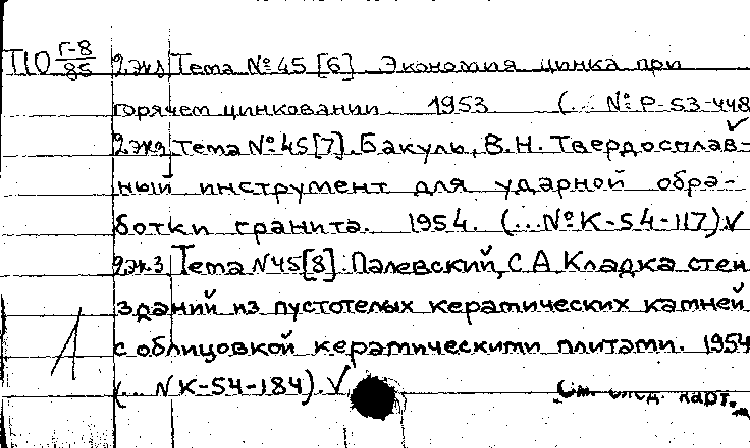 П10 Г-8/85 2 экз Тема №45 [6] Экономия цинка при
горячем цинковании. 1953 (... № Р-53-448
2 экз Тема №45[7]. Бакуль, В.Н. Твердосплав-
ный инструмент для ударной обра-
ботки гранита. 1954. (...№К-54-117)
2 эк.3 Тема N45[8]. Палевский, С А Кладка стен
зданий из пустотелых керамических камней
с облицовкой керамическими плитами. 1954
(... N К-54-184).
См. след. карт.